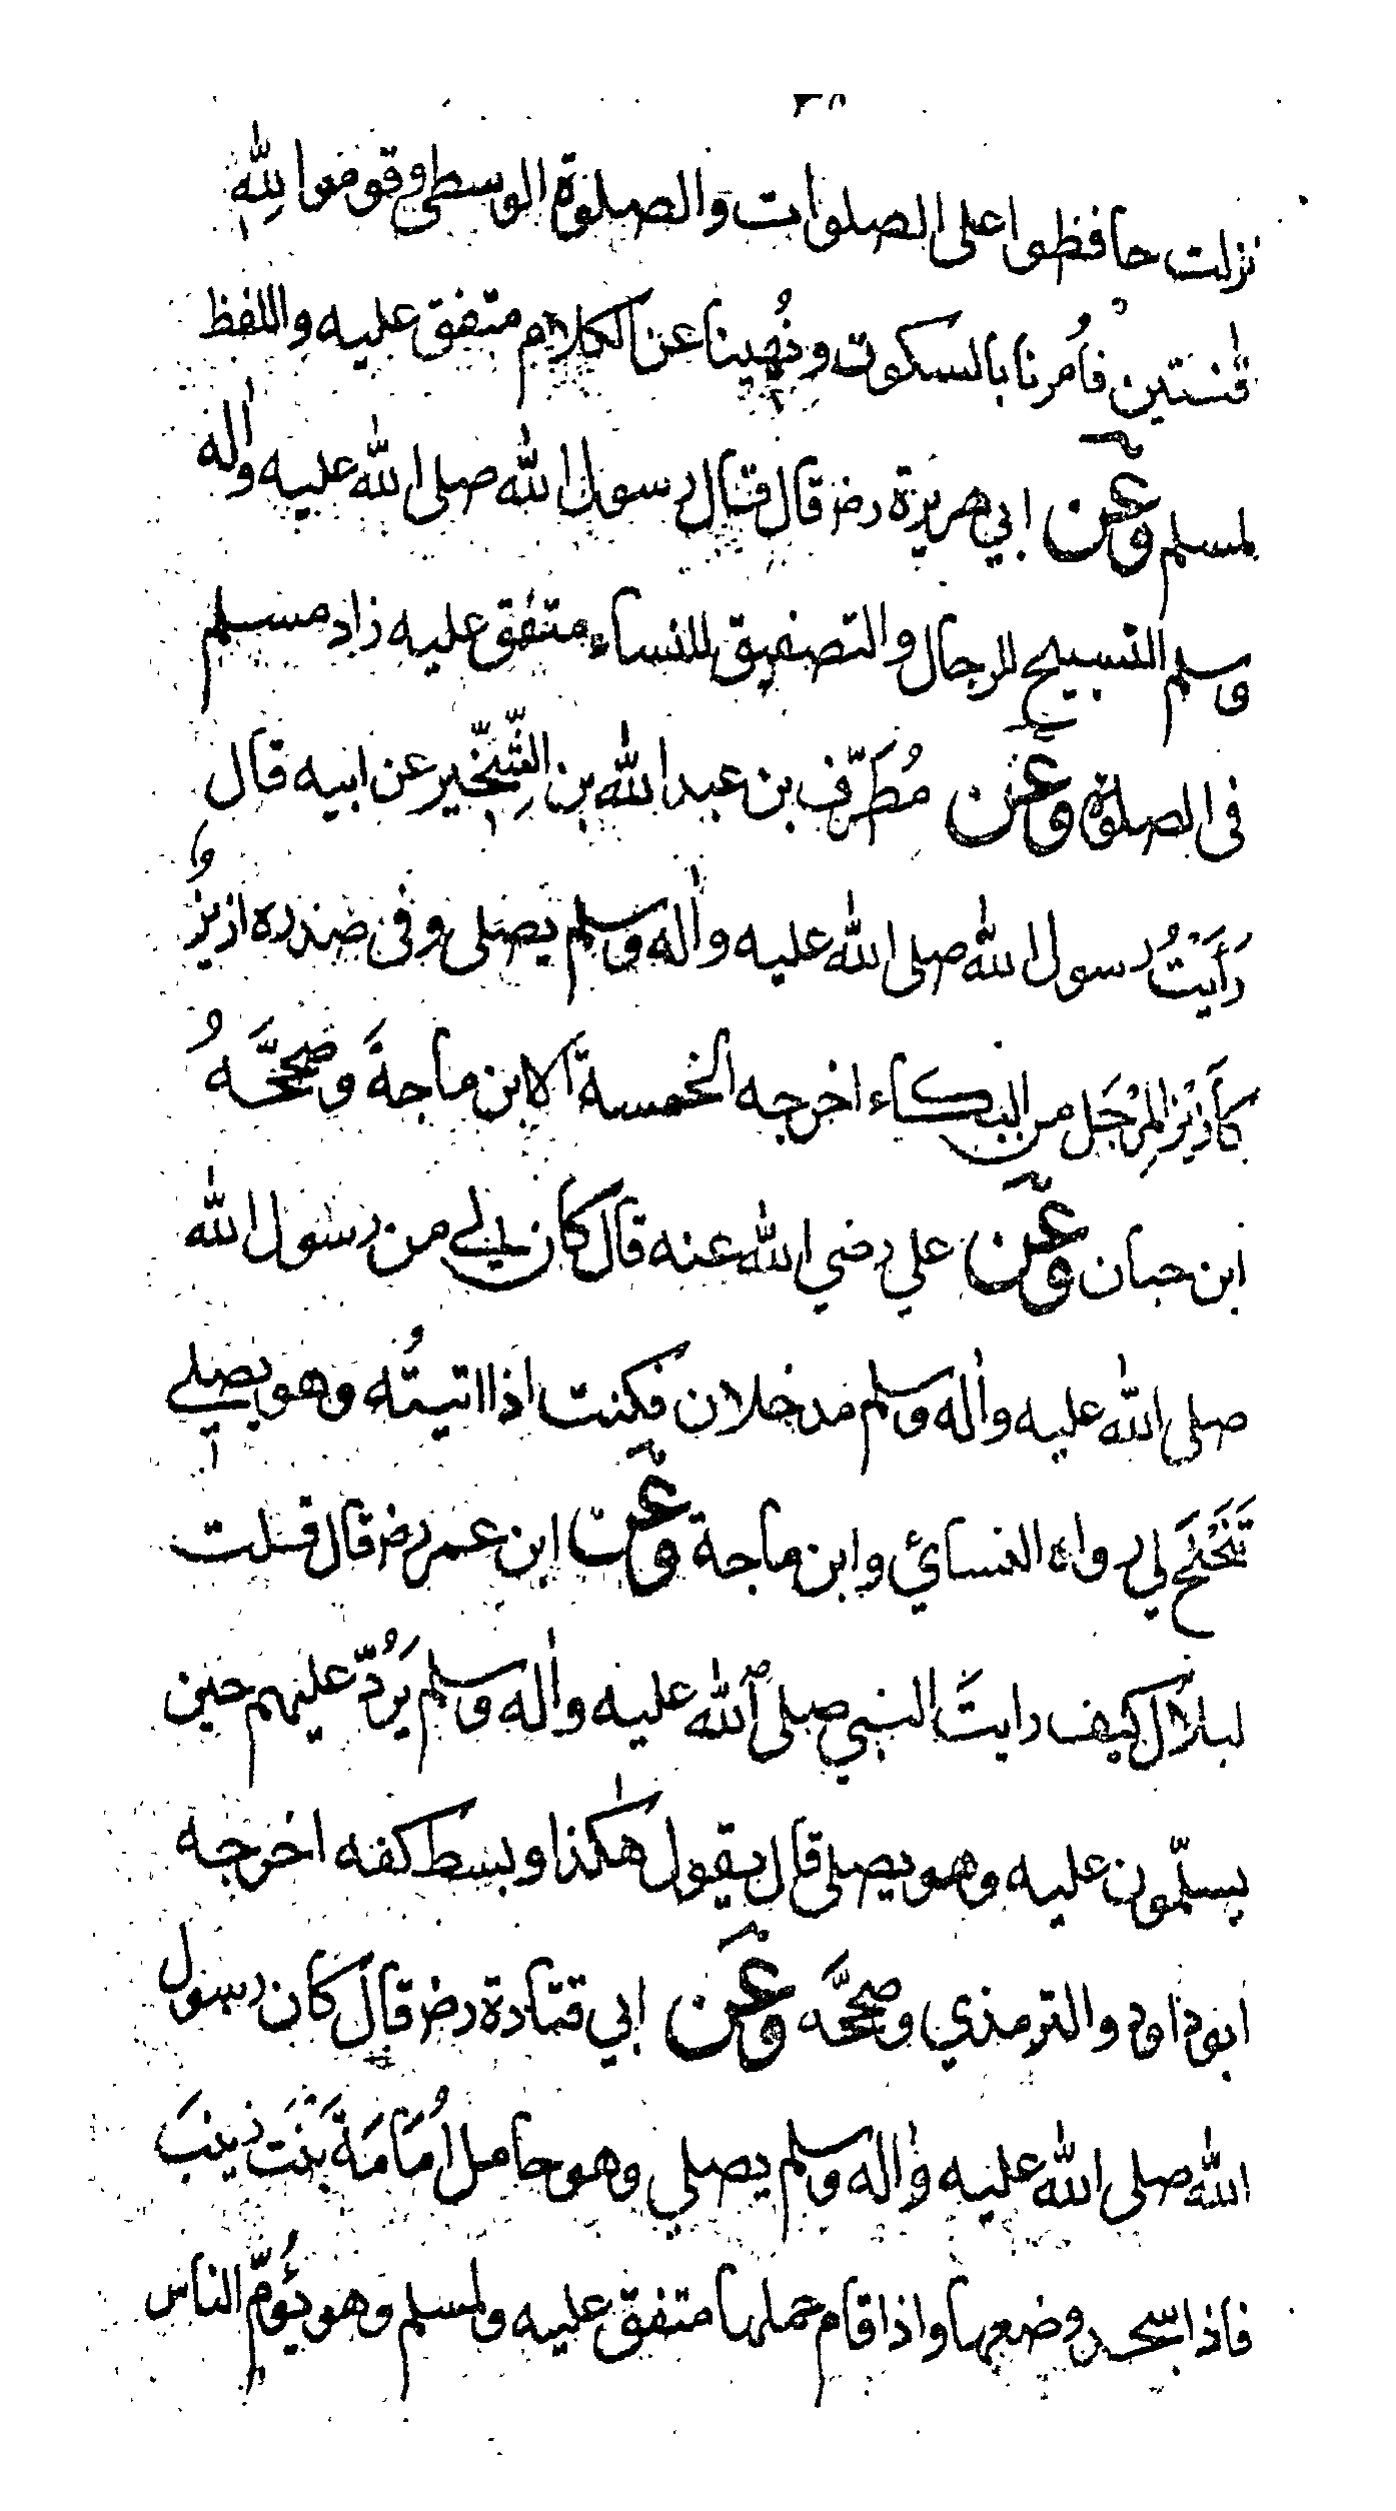 ٣٨
نزلت حافظوا على الصلوات والصلوة الوسطى وقوموا لِلّٰه
قٰنتين فأُمرنا بالسكوت ونُهينا عن الكلام متفق عليه واللفظ
لمسلم وعن ابي هريرة رضـ قال قال رسول اللّٰه صلى اللّٰه عليه واٰله
وسلم التسبيح للرجال والتصفيق للنساء متفق عليه زاد مسلم
فى الصلوة وعن مُطَرّف بن عبد اللّٰه بن الشِّخِّير عن ابيه قال
رَأَيْتُ رسول اللّٰه صلى اللّٰه عليه واٰله وسلم يصلى وفى صدره ازيزُ
كأَزِيْزِ المِرْجَل من البكاء اخرجه الخمسة الا ابن ماجةَ وصَحَّحَهُ
ابن حبان وعن علي رضي اللّٰه عنه قال كان لي من رسول اللّٰه
صلى اللّٰه عليه واٰله وسلم مدخلان فكنت اذا اتيتُه وهو يصلي
تَنَحْنَحَ لي رواه النسائي وابن ماجة وعن ابن عمر رضـ قال قلت
لبلال كيف رايتَ النبي صلى اللّٰه عليه واٰله وسلم يَرُدّ عليهم حين
يسلّمون عليه وهو يصلى قال يقول هٰكذا وبسط كفه اخرجه
ابو داود والترمذي وصححَّه وعن ابي قتادة رضـ قال كان رسول
اللّٰه صلى اللّٰه عليه واٰله وسلم يصلي وهو حامل اُمَامَةَ بَنْتَ زينبَ
فاذا سجد وضعها واذا قام حملها متفق عليه ولمسلم وهو يَؤُمّ الناس